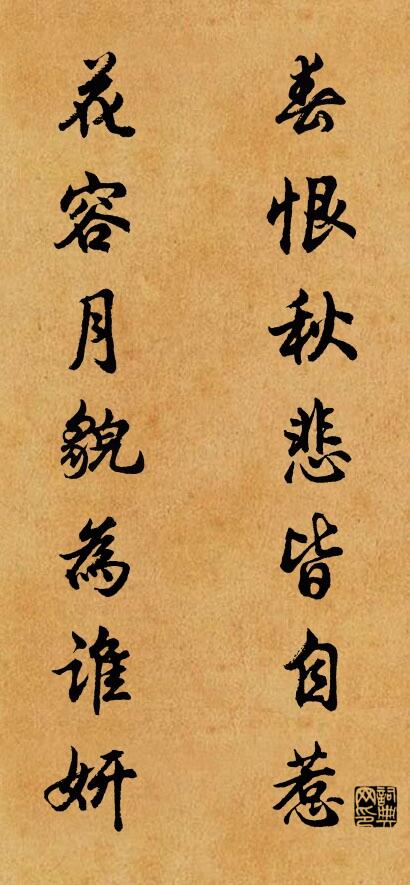 春恨秋悲皆自惹
花容月貌為誰妍
詞典网印